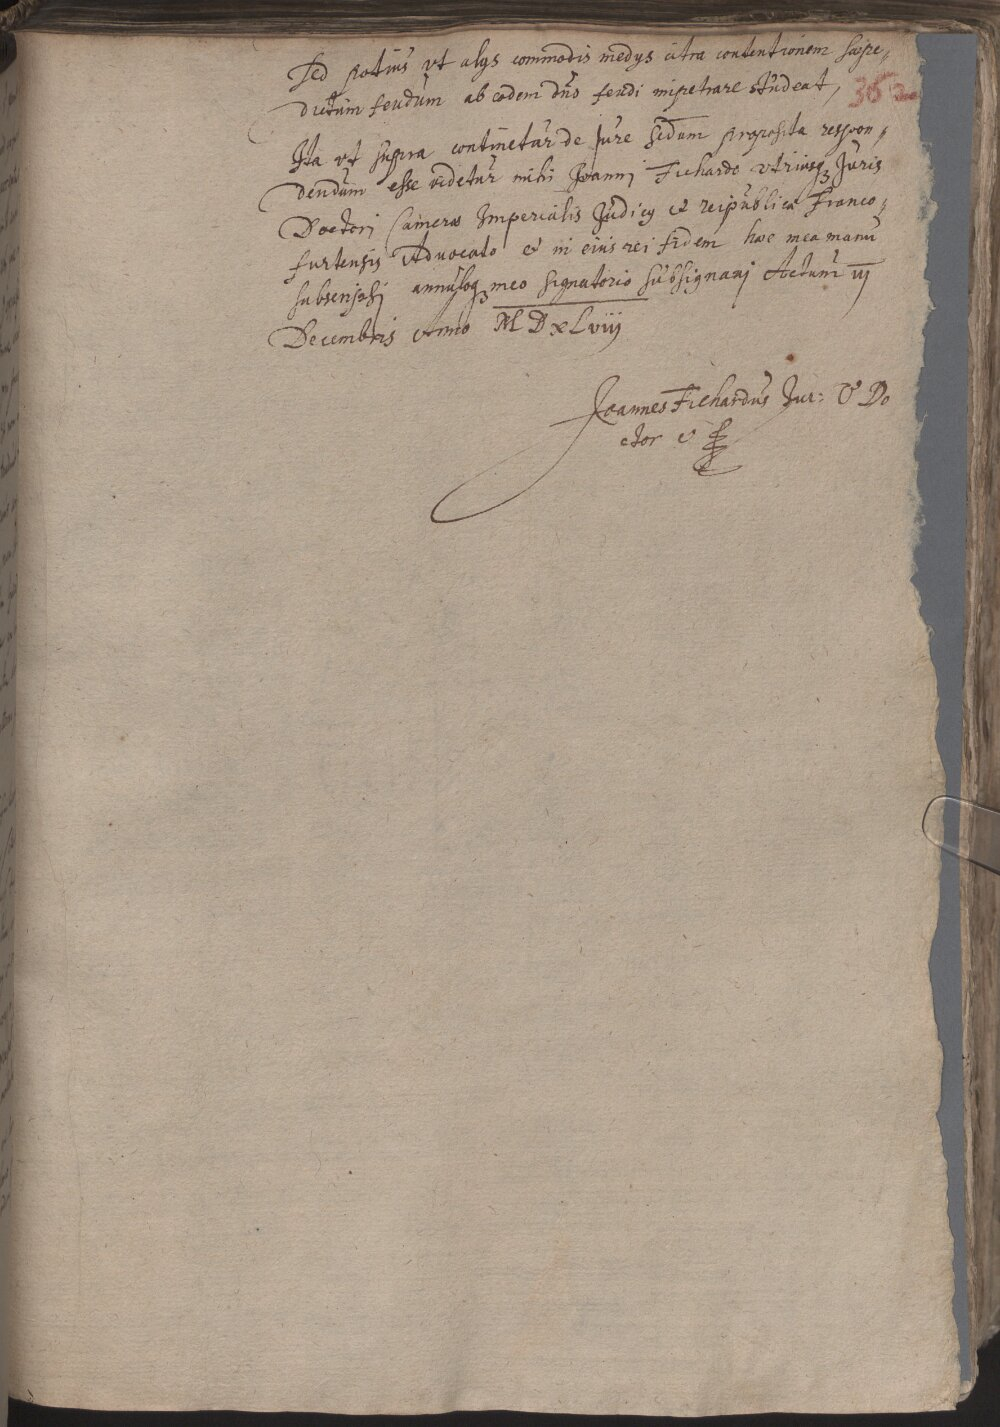 Sed potius vt alijs commodis medijs citra contentionem saepe„
dictum feudum ab eodem dno feudi impetrare studeat,
362
Ita vt supra continetur de Jure sedum proposita respon„
dendum esse videtur mihi Joannj Fichardo vtriusq Juris
Doctorj Camerae Imperialis Judicij & reipublicae Franco„
furtensis Aduocato & in eius rei fidem hac mea manu
subscripsj annuloq meo signatorio subsignauj Actum iij
Decembris Anno MDxLviij
Joannes Fichardus Jur: V Do
ctor &